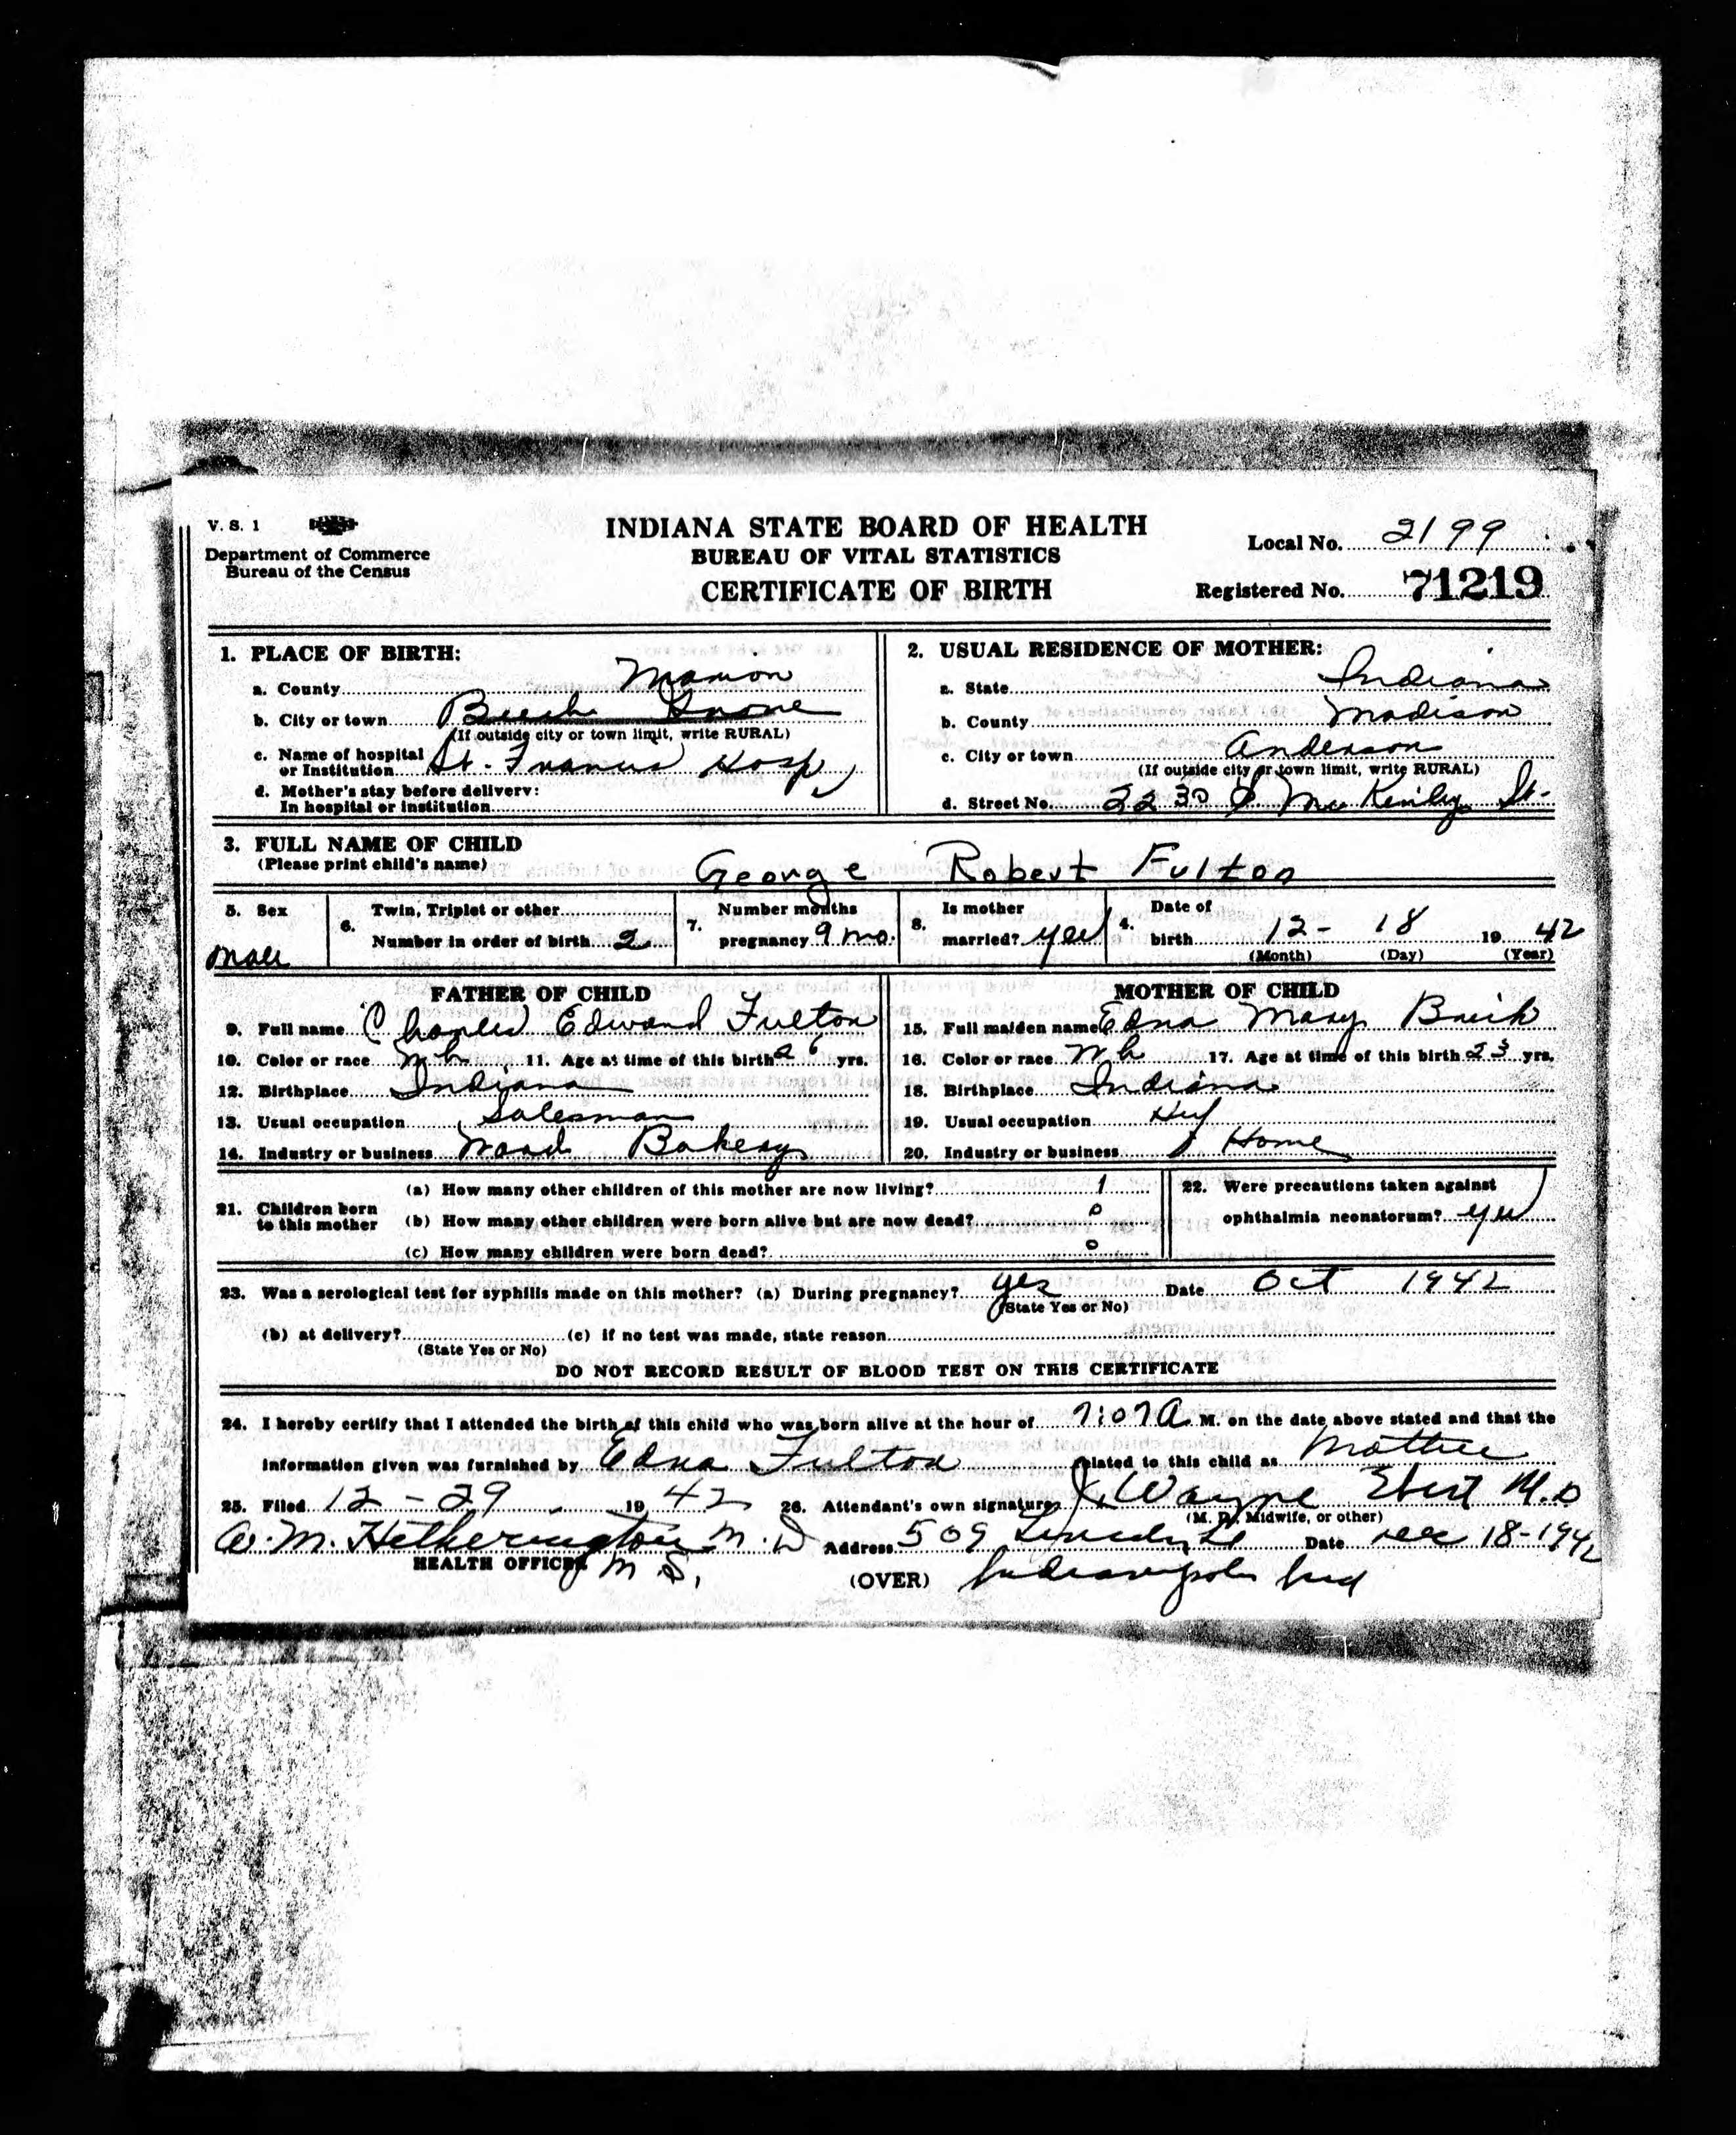 V. S. 1
Department of Commerce
Bureau of the Census
INDIANA STATE BOARD OF HEALTH
BUREAU OF VITAL STATISTICS
CERTIFICATE OF BIRTH
Local No. 2199
Registered No. 71219
1. PLACE OF BIRTH:
a. County Marion
b. City or town Beech Grove
(If outside city or town limit, write RURAL)
c. Name of hospital
or Institution St. Francis Hosp
d. Mother's stay before delivery:
In hospital or institution
2. USUAL RESIDENCE OF MOTHER:
a. State Indiana
b. County Madison
c. City or town Anderson
(If outside city or town limit, write RURAL)
d. Street No. 2230 McKinley St.
3. FULL NAME OF CHILD
(Please print child's name) George Robert Fulton
5. Sex Male
6. Twin, Triplet or other
Number in order of birth 2
7. Number months
pregnancy 9 mo.
8. Is mother
married? yes
4. Date of
birth 12- 18 19 42
(Month) (Day) (Year)
FATHER OF CHILD
9. Full name Charles Edward Fulton
10. Color or race Wh 11. Age at time of this birth 26 yrs.
12. Birthplace Indiana
13. Usual occupation Salesman
14. Industry or business Bakery
MOTHER OF CHILD
15. Full maiden name Edna Mary
16. Color or race Wh 17. Age at time of this birth 23 yrs.
18. Birthplace Indiana
19. Usual occupation
20. Industry or business Home
21. Children born
to this mother
(a) How many other children of this mother are now living? 1
(b) How many other children were born alive but are now dead? 0
(c) How many children were born dead? 0
22. Were precautions taken against
ophthalmia neonatorum? yes
23. Was a serological test for syphilis made on this mother? (a) During pregnancy? yes Date Oct 1942
(State Yes or No)
(b) at delivery? (c) if no test was made, state reason
(State Yes or No)
DO NOT RECORD RESULT OF BLOOD TEST ON THIS CERTIFICATE
24. I hereby certify that I attended the birth of this child who was born alive at the hour of 7:07 A M. on the date above stated and that the
information given was furnished by Edna Fulton related to this child as Mother
25. Filed 12-29 19 42 26. Attendant's own signature J. Wayne Ebert M.D
(M. D., Midwife, or other)
A. M. Hetherington M.D Address 509 Date Dec 18-1942
HEALTH OFFICER M S.
(OVER) Indianapolis Ind